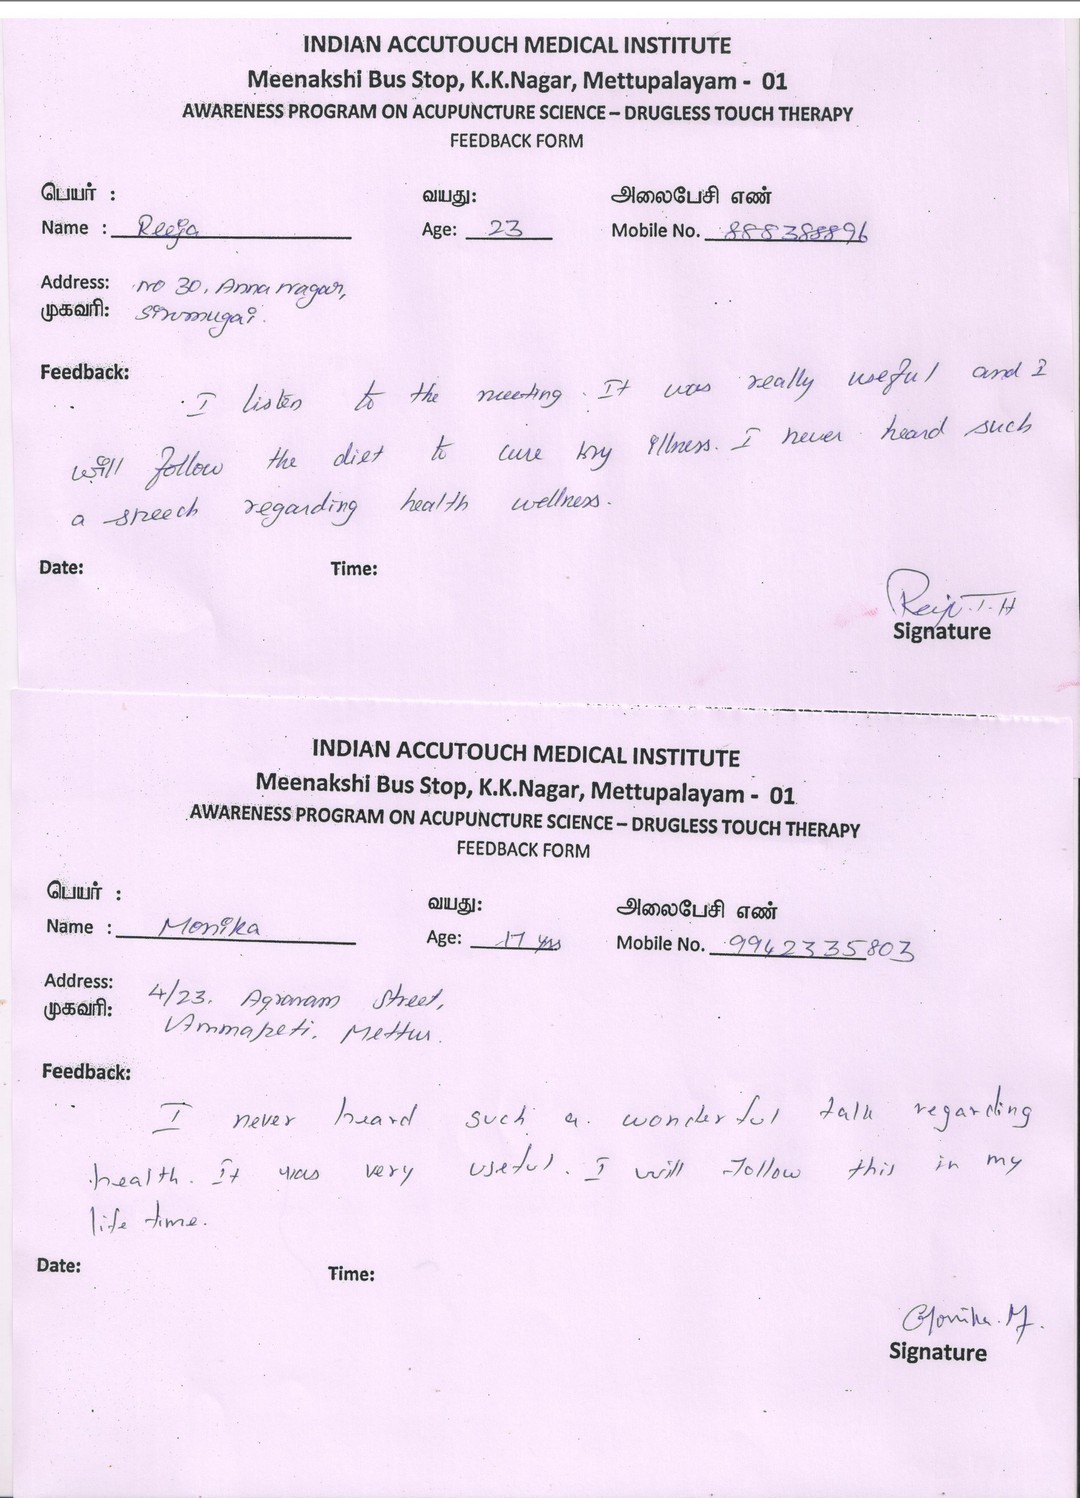 INDIAN ACCUTOUCH MEDICAL INSTITUTE
Meenakshi Bus Stop, K.K.Nagar, Mettupalayam - 01
AWARENESS PROGRAM ON ACUPUNCTURE SCIENCE – DRUGLESS TOUCH THERAPY
FEEDBACK FORM
பெயர் : வயது: அலைபேசி எண்
Name : Reeja Age: 23 Mobile No. 888388896
Address: No 30, Anna nagar,
முகவரி: Sirumugai.
Feedback:
I listen to the meeting. It was really useful and I
will follow the diet to cure my illness. I never heard such
a speech regarding health wellness.
Date: Time:
Signature
INDIAN ACCUTOUCH MEDICAL INSTITUTE
Meenakshi Bus Stop, K.K.Nagar, Mettupalayam - 01
AWARENESS PROGRAM ON ACUPUNCTURE SCIENCE – DRUGLESS TOUCH THERAPY
FEEDBACK FORM
பெயர் : வயது: அலைபேசி எண்
Name : Monika Age: 17 yrs Mobile No. 9942335803
Address: 4/23. Agranam Street,
முகவரி: Ammapeti. Mettur.
Feedback:
I never heard such a wonderful talk regarding
health. It was very useful. I will follow this in my
life time.
Date: Time:
Monika. M.
Signature